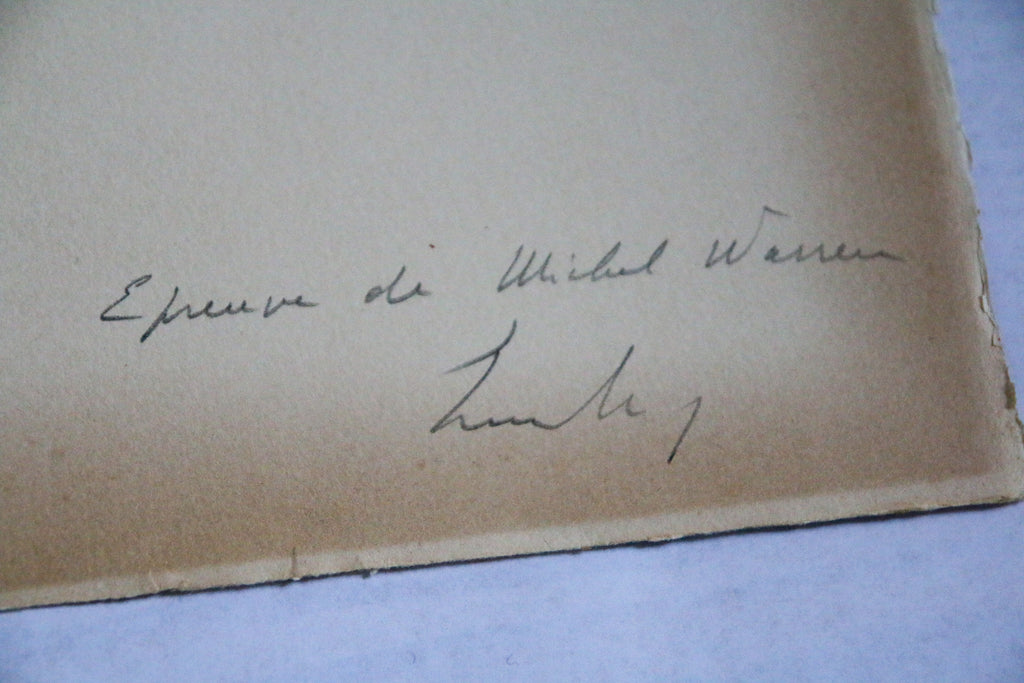 Epreuve de Michel Warren